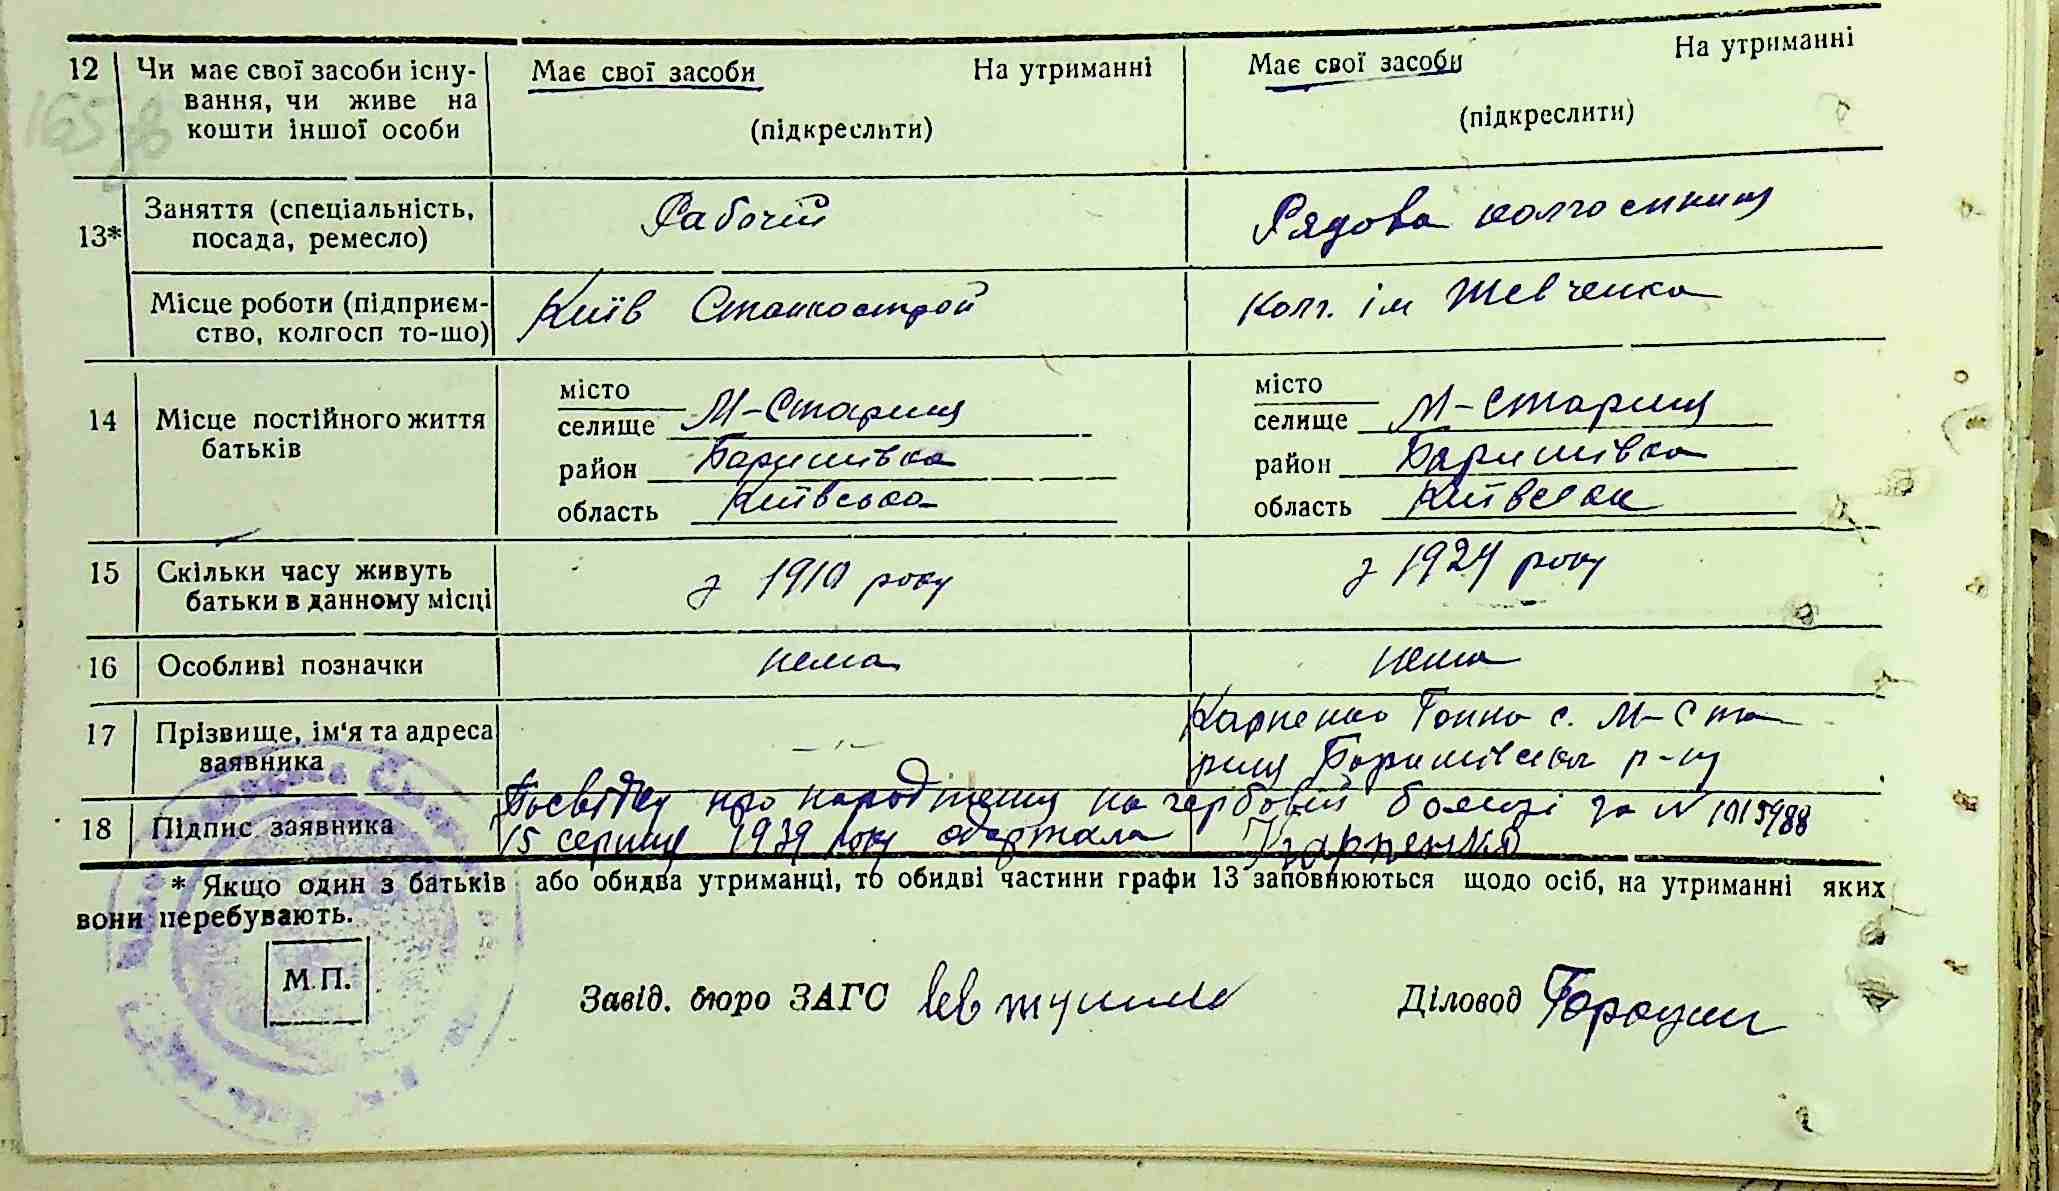 12 Чи має свої засоби існу- Має свої засоби На утриманні Має свої засоби На утриманні
вання, чи живе на
кошти іншої особи (підкреслити) (підкреслити)
165
13* Заняття (спеціальність, Рабочій Рядова колгоспниця
посада, ремесло)
Місце роботи (підприєм- Київ Станкострой Колг. ім Шевченка
ство, колгосп то-що)
14 Місце постійного життя місто місто
батьків селище М-Стариця селище М-Стариця
район Баришівка район Баришівка
область Київська область Київська
15 Скільки часу живуть з 1910 року з 1924 року
батьки в данному місці
16 Особливі позначки нема нема
17 Прізвище, ім'я та адреса Карпенко Ганна с. М-Ста
заявника риця Баришівськ р-ну
18 Підпис заявника Посвідку про народження на гербовій бомазі за №
15 серпня 1939 року одержала Карпенко
* Якщо один з батьків або обидва утриманці, то обидві частини графи 13 заповнюються щодо осіб, на утриманні яких
вони перебувають.
М.П. Завід. бюро ЗАГС Діловод